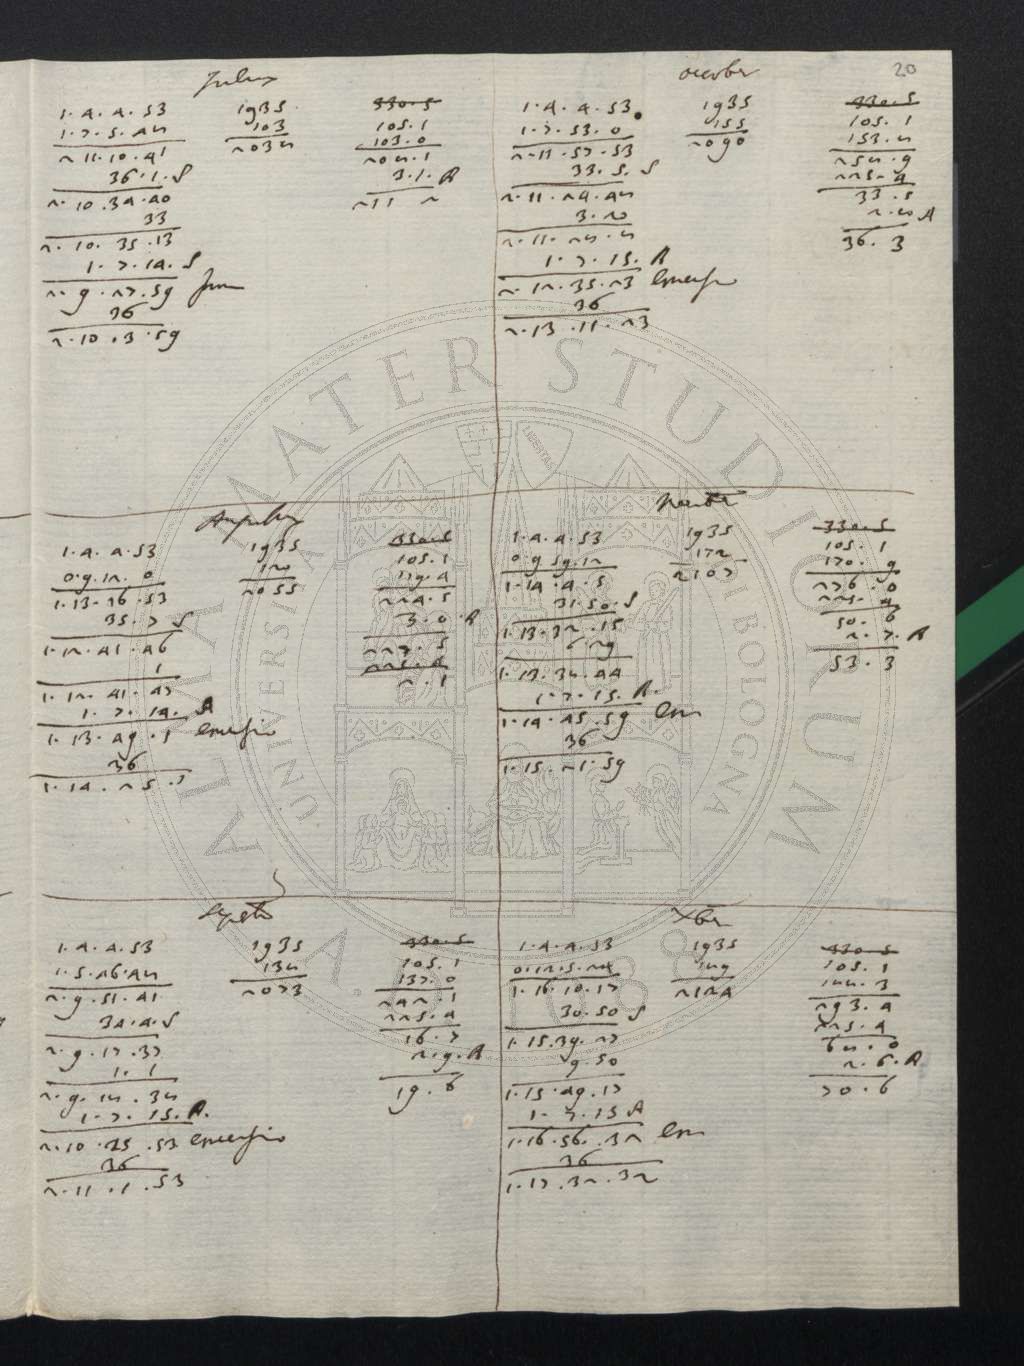 20
Julius
1.4.4.53
1.7.5.48
2.11.10.41
36.1.S
2.10.34.40
33
2.10.35.13
1.7.14.S
2.9.27.59 Imm
36
2.10.3.59
1935
103
2038
330.5
105.1
103.0
208.1
3.1.A
211 2
Augustus
1.4.4.53
0.9.12.0
1.13.16.53
35.7 S
1.12.41.46
1
1.12.41.47
1.7.14.A
1.13.49.1 Emersio
36
1.14.25.1
1935
120
2055
330.5
105.1
119.4
224.5
3.0.A
227.5
225.4
2.1
Septēb
1.4.4.53
1.5.46.48
2.9.51.41
34.4.S
2.9.17.37
1.1
2.9.18.38
1.7.15.A.
2.10.25.53 Emersio
36
2.11.1.53
1935
138
2073
330.5
105.1
137.0
242.1
225.4
16.7
2.9.A
19.6
october
1.4.4.53
1.7.53.0
2.11.57.53
33.5.S
2.11.24.48
3.20
2.11.28.8
1.7.15.A
2.12.35.23 Emersio
36
2.13.11.23
1935
155
2090
330.5
105.1
153.8
258.9
225.4
33.5
2.8 A
36.3
1.4.4.53
0.9.59.12
1.14.4.5
31.50.S
1.13.32.15
6.29
1.13.38.44
1.7.15.A.
1.14.45.59 Em
36
1.15.21.59
1935
172
2107
330.5
105.1
170.9
276.0
225.4
50.6
2.7.A
53.3
Xber
1.4.4.53
0.12.5.24
1.16.10.17
30.50 S
1.15.39.27
9.50
1.15.49.17
1.7.15 A
1.16.56.32 Em
36
1.17.32.32
1935
189
2124
330.5
105.1
188.3
293.4
225.4
68.0
2.6.A
70.6
ALMA MATER STUDIORUM
UNIVERSITÀ DI BOLOGNA
LIBERTAS
A.D. 1088